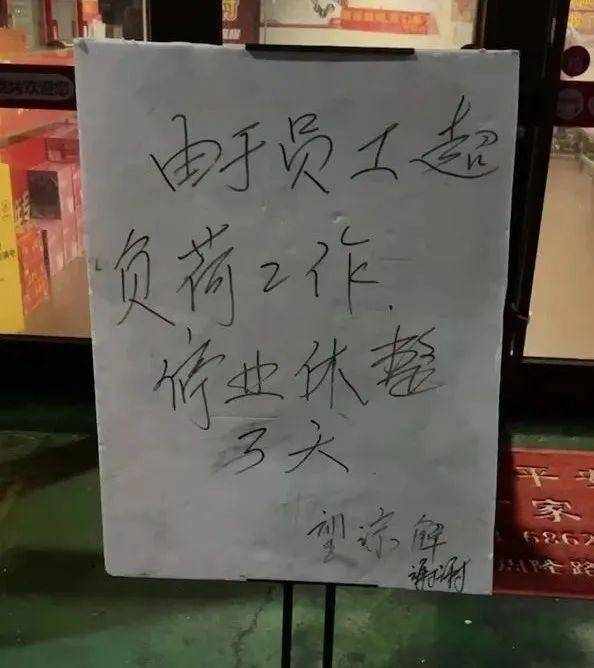 欢迎您
由于员工超
负荷工作.
停业休整
3天
望谅解
谢谢
平安
家